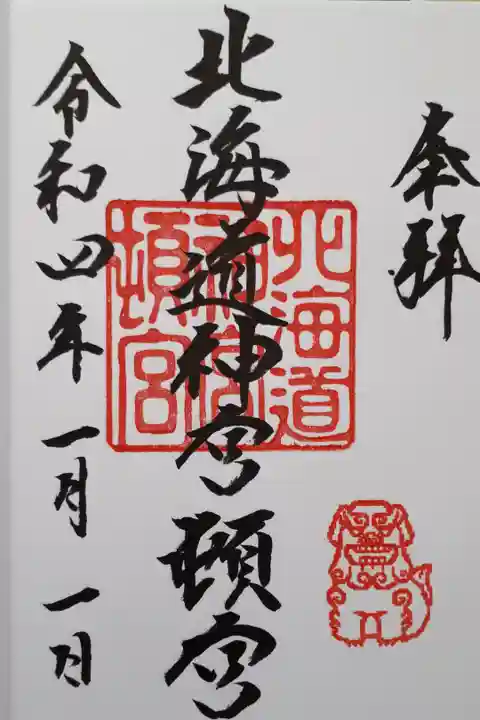 奉拝
北海道神宮頓宮
北海道
神宮
頓宮
令和四年一月一日